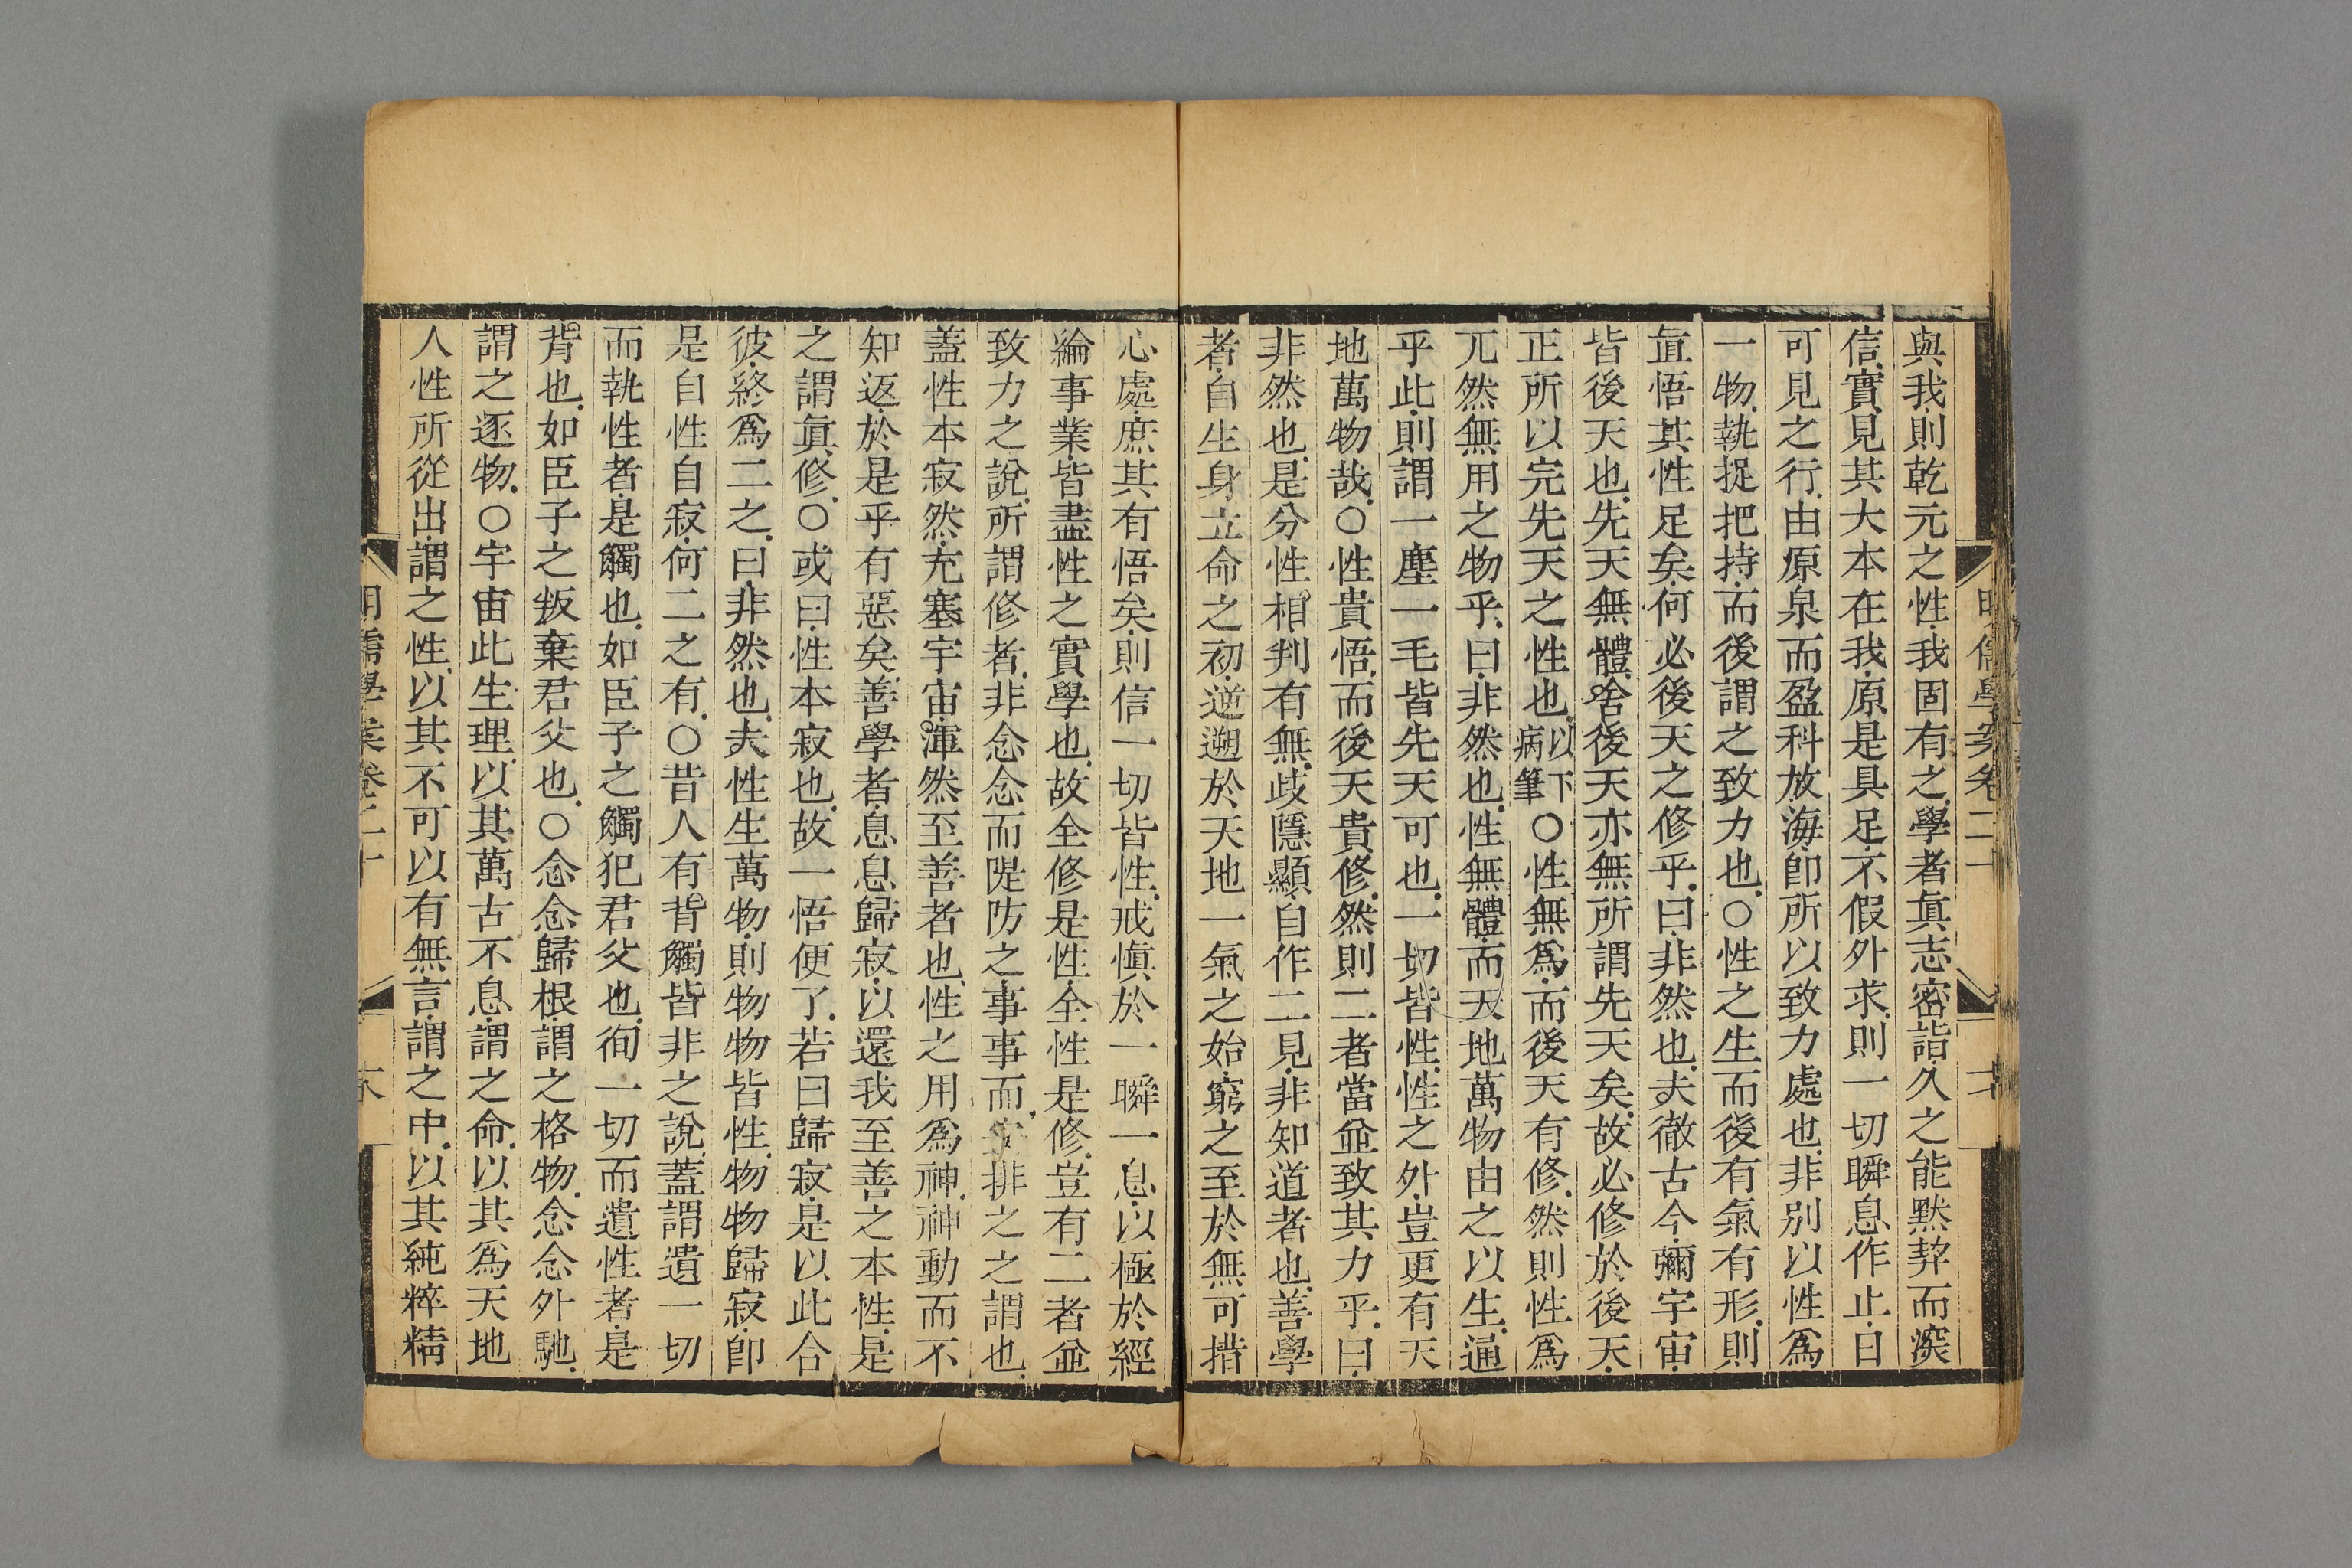 與我則乾元之性我固有之學者眞志密詣久之能默契而深
信實見其大本在我原是具足不假外求則一切瞬息作止日
可見之行由原泉而盈科放海卽所以致力處也非別以性爲
一物執捉把持而後謂之致力也○性之生而後有氣有形則
直悟其性足矣何必後天之修乎曰非然也夫徹古今彌宇宙
皆後天也先天無體舍後天亦無所謂先天矣故必修於後天
正所以完先天之性也以下病筆○性無爲而後天有修然則性爲
兀然無用之物乎曰非然也性無體而天地萬物由之以生通
乎此則謂一塵一毛皆先天可也一切皆性性之外豈更有天
地萬物哉○性貴悟而後天貴修然則二者當並致其力乎曰
非然也是分性相判有無歧隱顯自作二見非知道者也善學
者自生身立命之初逆遡於天地一氣之始窮之至於無可措
心處庶其有悟矣則信一切皆性戒愼於一瞬一息以極於經
綸事業皆盡性之實學也故全修是性全性是修豈有二者並
致力之說所謂修者非念念而隄防之事事而安排之之謂也
蓋性本寂然充塞宇宙渾然至善者也性之用爲神神動而不
知返於是乎有惡矣善學者息息歸寂以還我至善之本性是
之謂眞修○或曰性本寂也故一悟便了若曰歸寂是以此合
彼終爲二之曰非然也夫性生萬物則物物皆性物物歸寂卽
是自性自寂何二之有○昔人有背觸皆非之說蓋謂遺一切
而執性者是觸也如臣子之觸犯君父也徇一切而遺性者是
背也如臣子之叛棄君父也○念念歸根謂之格物念念外馳
謂之逐物○宇宙此生理以其萬古不息謂之命以其爲天地
人性所從出謂之性以其不可以有無言謂之中以其純粹精
明儒學案卷二十